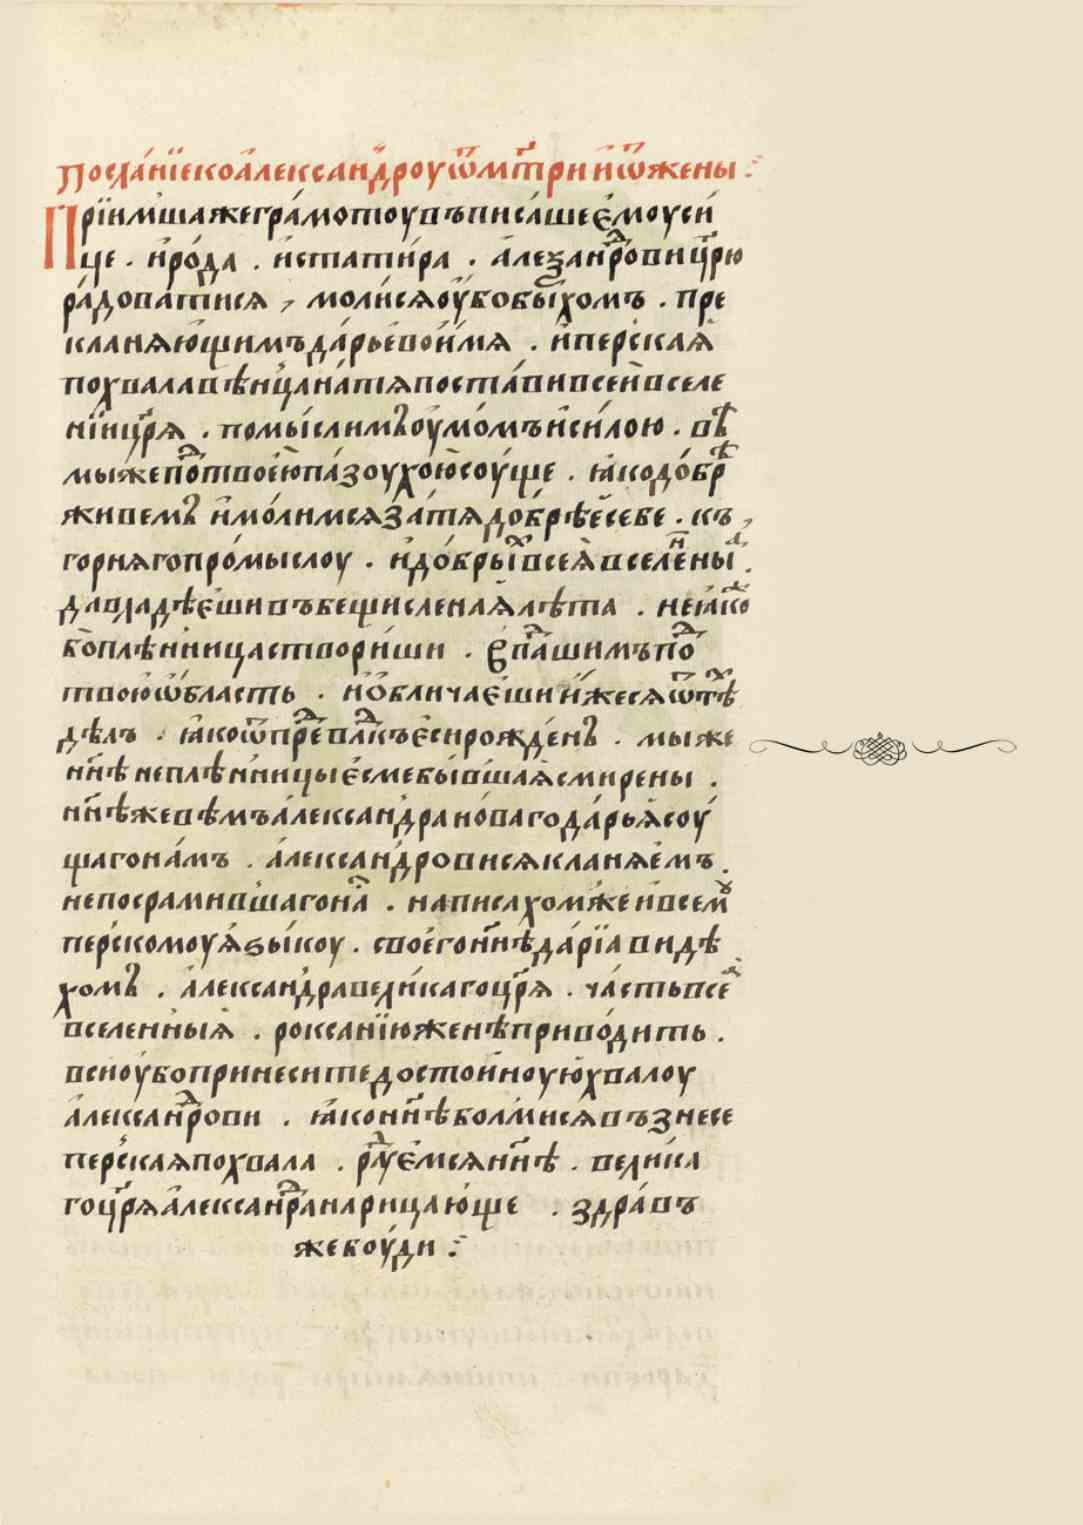 Посла́нїе ко а҆леѯандроу ѿ мт҃ри и҆ ѿ жены :
Прїимша же гра́мотоу въписа́ше є҆моу си́
це . и҆ро́да . и҆статира . а҆леѯанⷣрови цр҃ю
ра́доватися , молися оу҆бо бы́хомъ . пре
кланяю҆щимъ да́рьево и҆мя . и҆ перскаꙗ
похвала вѣнца на́ тя поста́ви всей вселе
нїи цр҃я . помы́слимъ оу҆мо́мъ и҆ си́лою . вѣ
мы же поⷣ твоею̀ па́зоухою соу́ще . ꙗ҆ко до́брѣ
живемъ и҆ мо́лимся за́ тя до́брѣе себе . къ
горняго про́мыслоу . и҆ до́брыⷯ всея̀ вселеⷩ҇ныⷶ .
да владѣе҆ши въ бещисленаꙗ лѣта . не ꙗ҆кⷤо
бо плѣнница створи́ши . є҆ паⷣшимъ поⷣ
твою ѿбласть . и҆ о҆бличае҆ши и҆же ся ѿтѣⷯ
дѣлъ . ꙗ҆ко ѿ преⷣ влⷣкъ є҆си рожде́нъ . мы же
нн҃ѣ не плѣнницы е҆сме бывшаꙗ смирены .
нн҃ѣ же вѣмъ а҆леѯандра но́ваго да́рьꙗ соу́
щаго на́мъ . а҆леѯандрови ся кланяе҆мъ .
не посрамившаго наⷭ . написахом же и҆ всемоу
перскомоу ꙗ҆ꙁы́коу . свое́го нн҃ѣ да́рїа видѣ
хомъ . а҆леѯандра вели́каго цр҃я . ча́сть всеⷶ
вселенныꙗ . роксанїю женѣ приво́дить .
вси оу҆бо принесите досто́йноую хвалоу
а҆леѯанⷣрови . ꙗ҆ко нн҃ѣ бо́лми ся̀ възнесе
перскаꙗ похвала . раⷣуе҆мся нн҃ѣ . вели́ка
го цр҃я а҆леѯанⷣра нарицаю҆ще . здра́въ
же боу́ди :